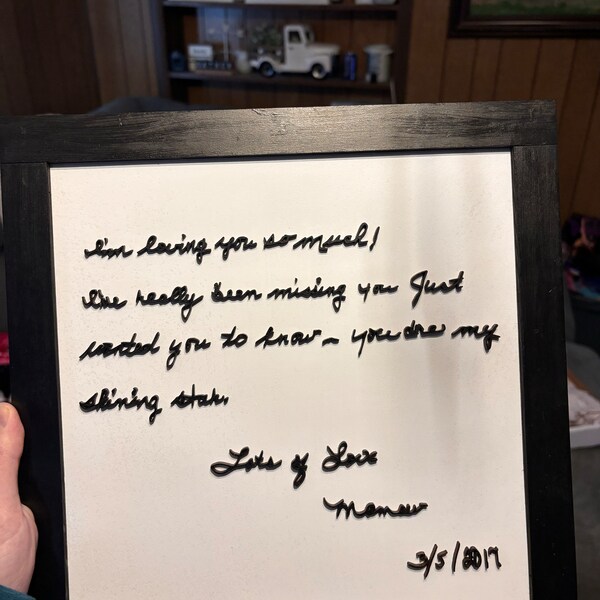 I'm loving you so much!
I've really been missing you Just
wanted you to know ~ you are my
shining star.
Lots of Love
Mamaw
3/5/2017